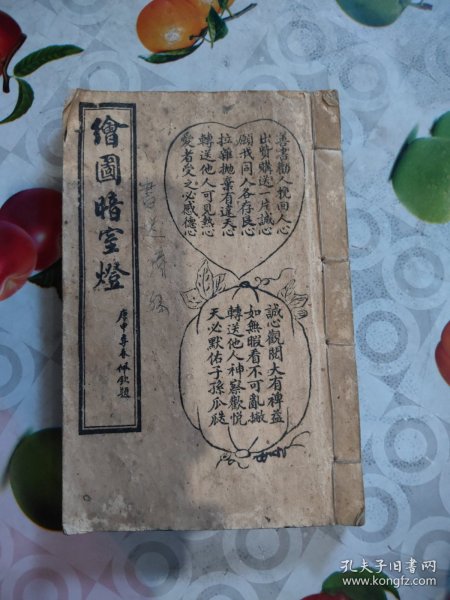 善書勸人挽回人心
出資購送一片誠心
願我同人各存良心
拉雜拋棄有違天心
轉送他人可見熱心
愛者受之必感德心
誠心觀閱大有裨益
如無暇看不可亂撇
轉送他人神察歡悅
天必默佑子孫瓜瓞
繪圖暗室燈
庚申季春
孔夫子旧书网
www.kongfz.com